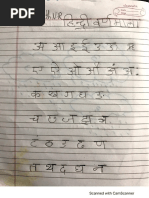 हिन्दी वर्णमाला
अ आ इ ई उ ऊ ऋ
ए ऐ ओ औ अं अः
क ख ग घ ङ
च छ ज झ ञ
ट ठ ड ढ ण
त थ द ध न
Scanned with CamScanner